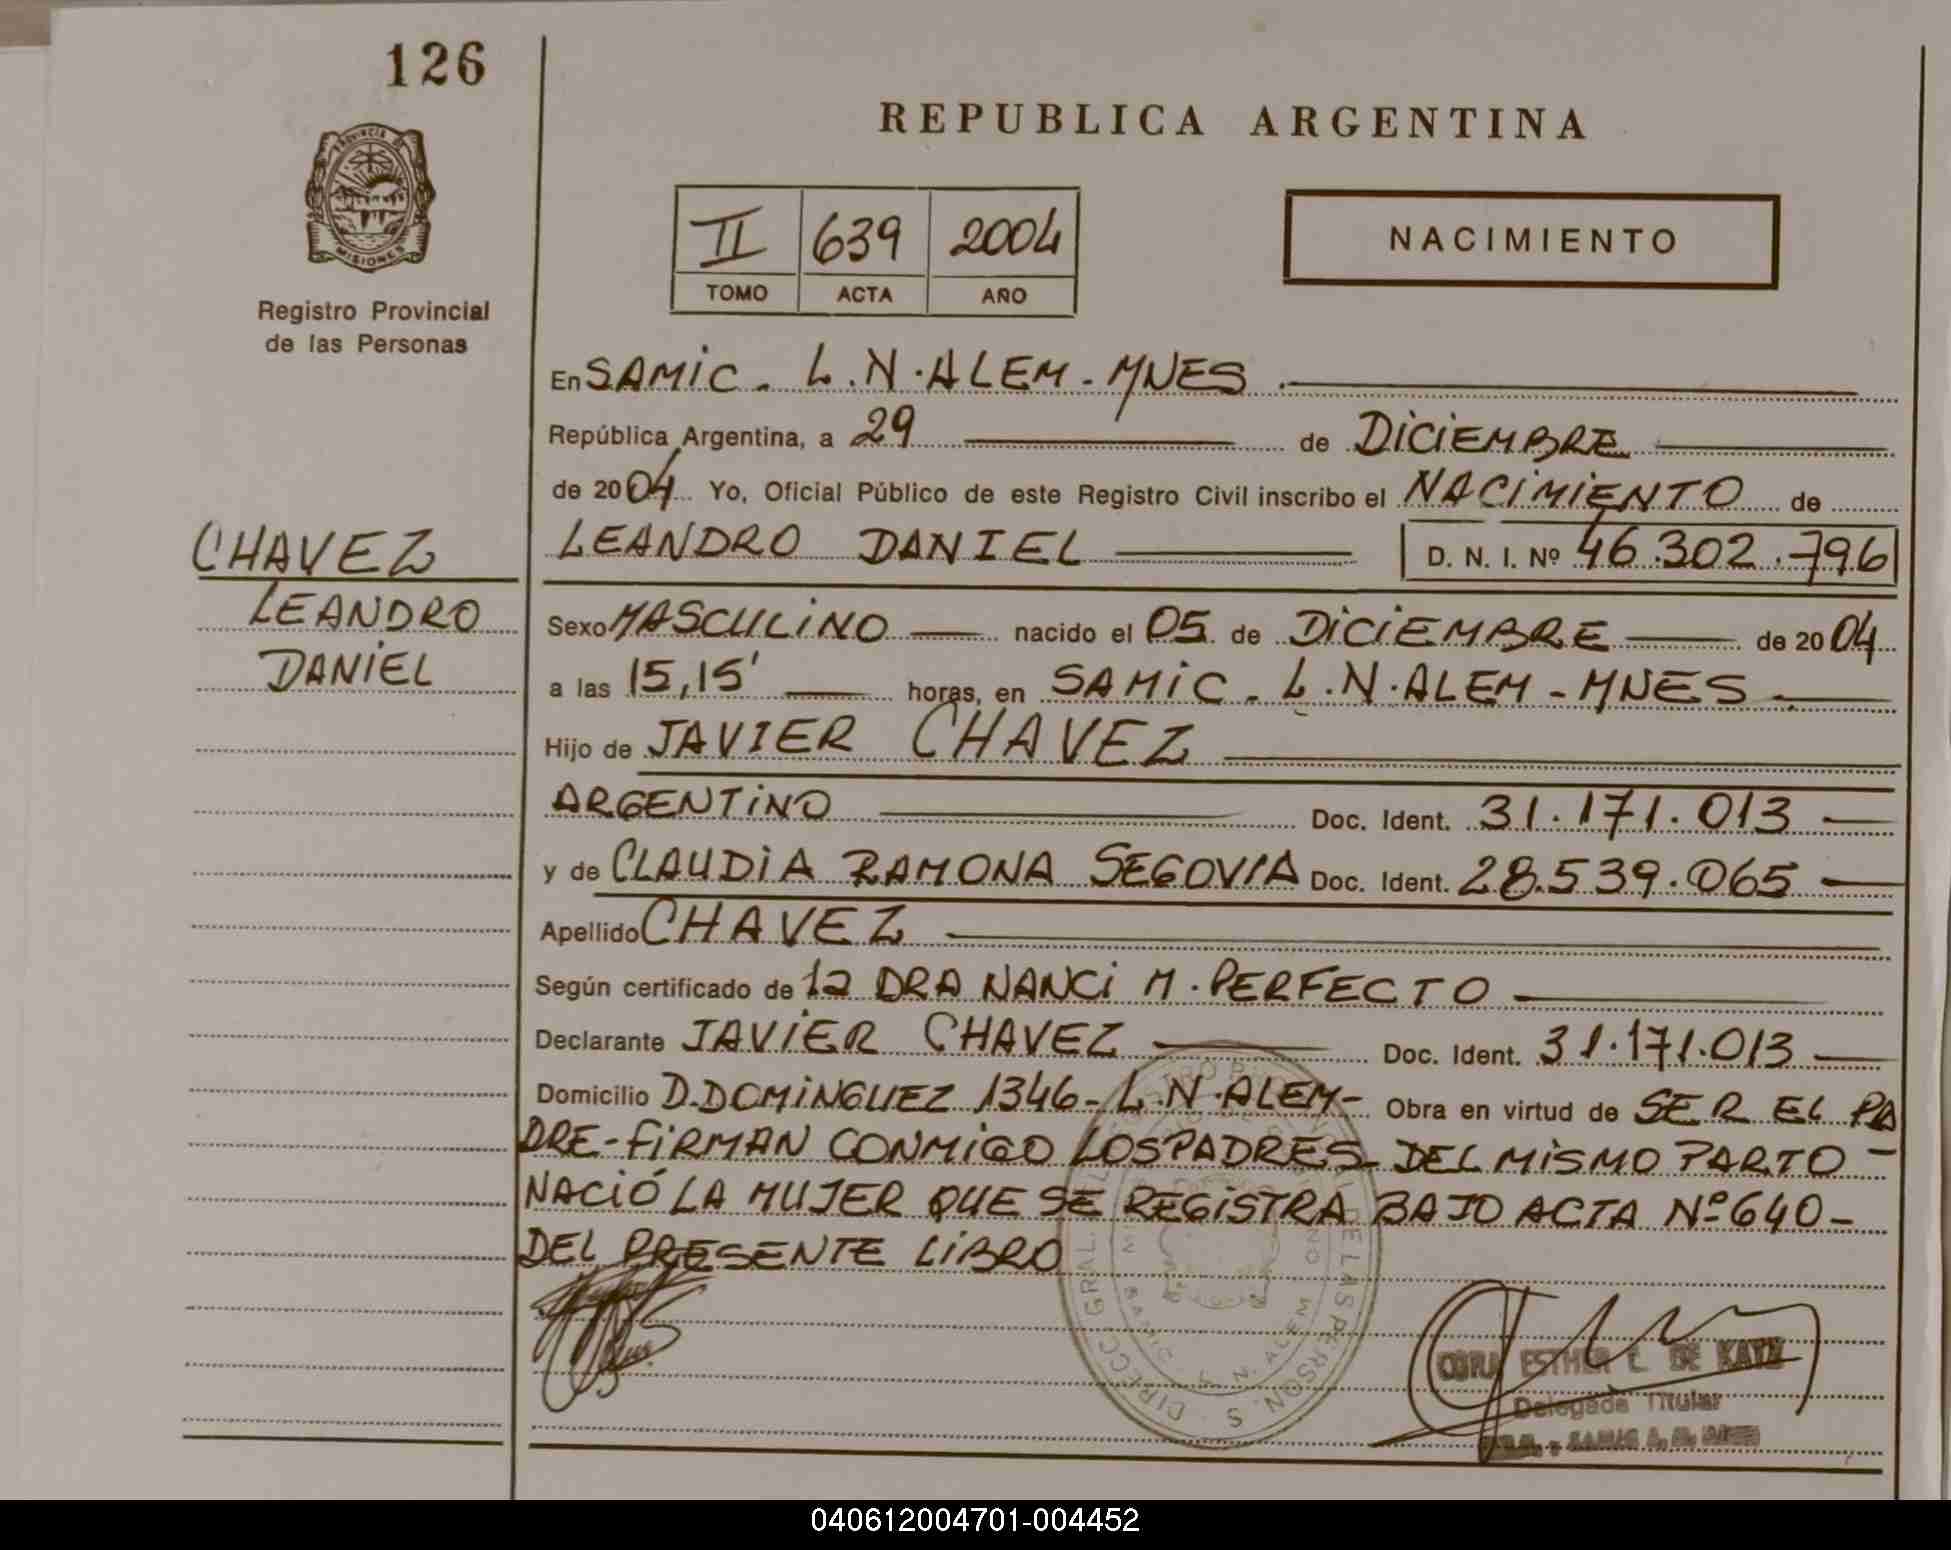 126
PROVINCIA DE
MISIONES
Registro Provincial
de las Personas
CHAVEZ
LEANDRO
DANIEL
REPUBLICA ARGENTINA
II 639 2004
TOMO ACTA AÑO
NACIMIENTO
En SAMIC. L.N.ALEM-MNES.
República Argentina, a 29 de DICIEMBRE
de 2004 Yo, Oficial Público de este Registro Civil inscribo el NACIMIENTO de
LEANDRO DANIEL D. N. I. Nº 46.302.796
Sexo MASCULINO nacido el 05 de DICIEMBRE de 2004
a las 15,15' horas, en SAMIC. L.N.ALEM-MNES.
Hijo de JAVIER CHAVEZ
ARGENTINO Doc. Ident. 31.171.013
y de CLAUDIA RAMONA SEGOVIA Doc. Ident. 28.539.065
Apellido CHAVEZ
Según certificado de la DRA NANCI M. PERFECTO
Declarante JAVIER CHAVEZ Doc. Ident. 31.171.013
Domicilio D.DOMINGUEZ 1346-L.N.ALEM- Obra en virtud de SER EL PA
DRE-FIRMAN CONMIGO LOS PADRES. DEL MISMO PARTO-
NACIÓ LA MUJER QUE SE REGISTRA BAJO ACTA Nº 640-
DEL PRESENTE LIBRO
ESTHER E. DE KATZ
Delegada Titular
040612004701-004452